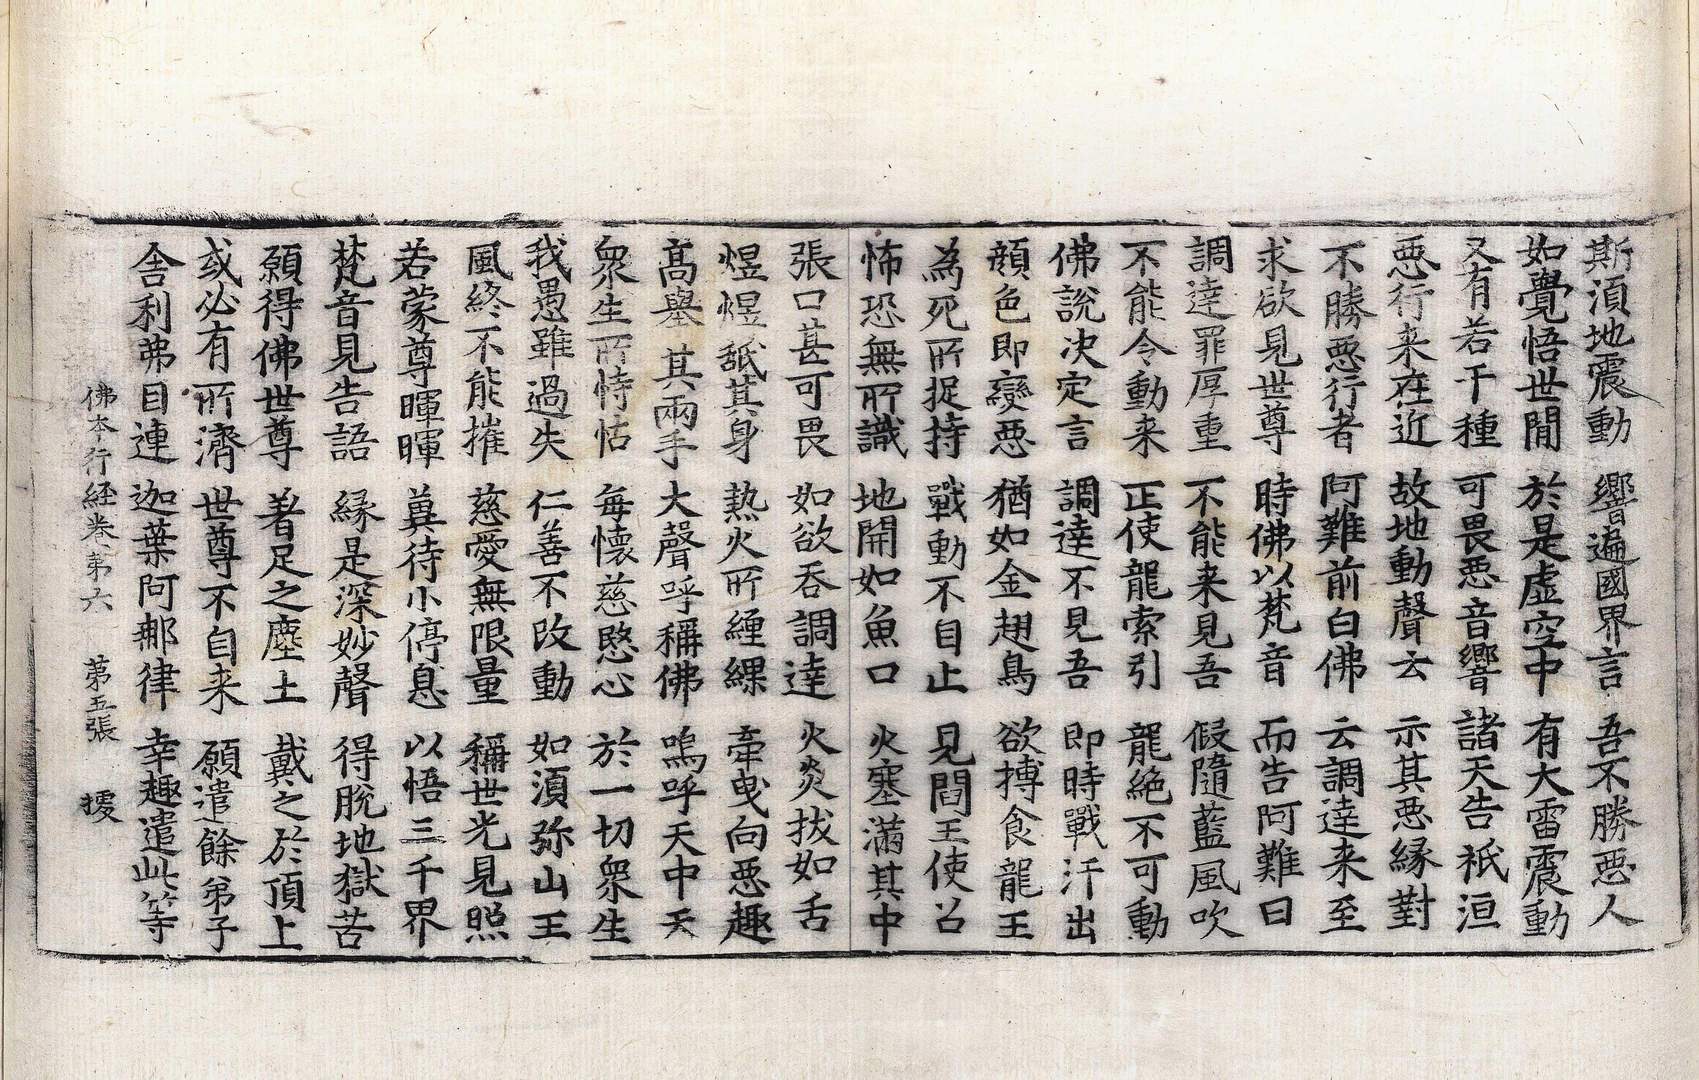 斯湏地震動 響遍國界言 吾不勝惡人
如覺悟世閒 於是虛空中 有大雷震動
又有若干種 可畏惡音響 諸天告祇洹
惡行来在近 故地動聲云 示其惡縁對
不勝惡行者 阿難前白佛 云調達来至
求欲見世尊 時佛以梵音 而告阿難曰
調達罪厚重 不能来見吾 假隨藍風吹
不能令動来 正使龍索引 龍絶不可動
佛說决定言 調達不見吾 即時戰汗出
顔色即變惡 猶如金翅鳥 欲搏食龍王
為死所捉持 戰動不自止 見閻王使召
怖恐無所識 地開如魚口 火塞滿其中
張口甚可畏 如欲吞調達 火炎拔如舌
煜煜舐其身 熱火所纏縲 牽曵向惡趣
高舉其兩手 大聲呼稱佛 嗚呼天中天
衆生所恃怙 每懷慈愍心 於一切衆生
我愚雖過失 仁善不改動 如湏弥山王
風終不能摧 慈愛無限量 稱世光見照
若蒙尊暉暉 冀待小停息 以悟三千界
梵音見告語 縁是深妙聲 得脫地獄苦
願得佛世尊 著足之塵土 戴之於頂上
或必有所濟 世尊不自来 願遣餘弟子
舎利弗目連 迦葉阿那律 幸趣遣此等
佛本行経卷第六 第五張 㩲